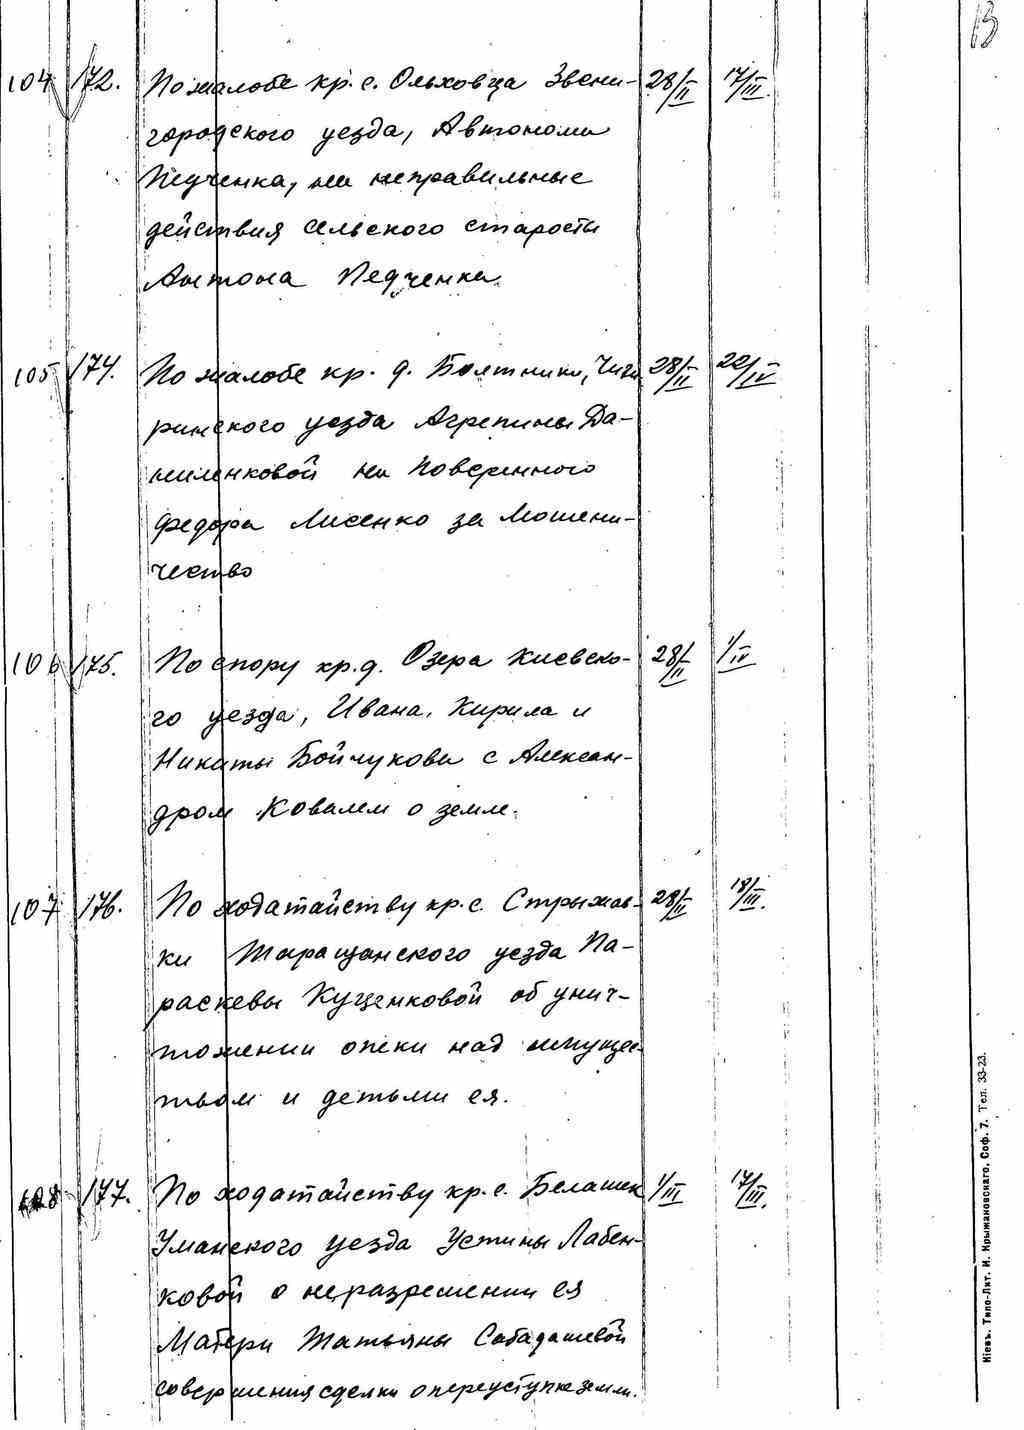 13
104 172. По жалобе кр. с. Ольховца Звени- 28/II 17/III.
городского уезда, Автонома
Педченка, на неправильные
действия сельского старосты
Антона Педченка.
105 174. По жалобе кр. д. Болтышки, Чиги 28/II 22/IV
ринского уезда Агрепины Да-
ниленковой на поверенного
Федора Лисенко за мошени-
чество
106 175. По спору кр. д. Озера Киевско- 28/II 1/IV
го уезда, Ивана, Кирила и
Никиты Бойчукова с Алексан-
дром Ковалем о земле.
107 176. По ходатайству кр. с. Стрыжав- 28/II 18/III.
ки Таращанского уезда Па-
раскевы Куценковой об унич-
тожении опеки над имущес
твом и детьми ея.
108 177. По ходатайству кр. с. Белашек 1/III 17/III.
Уманского уезда Устины Лабен-
ковой о неразрешении ея
матери Татьяны Сабадашевой
совершения сделки о переуступке земли.
Кіевъ. Типо-Лит. И. Крыжановскаго, Соф. 7. Тел. 33-23.